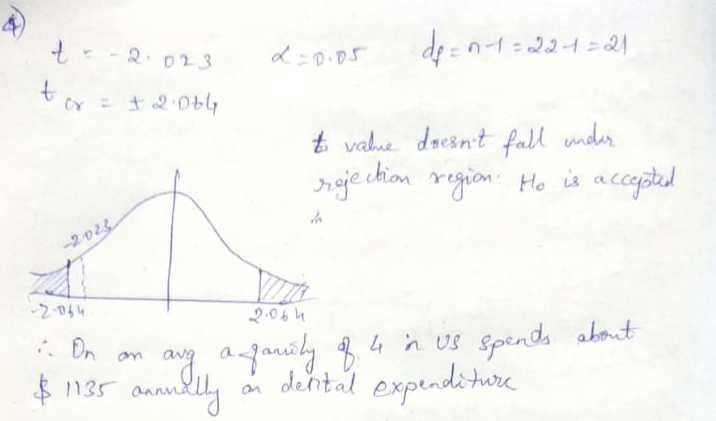 4)
t = -2.023 α = 0.05 df = n-1 = 22-1 = 21
t cr = ± 2.064
t value doesn't fall under
rejection region. H0 is accepted
-2.023
-2.064 2.064
∴ On an avg a family of 4 in US spends about
$ 1135 annually on dental expenditure